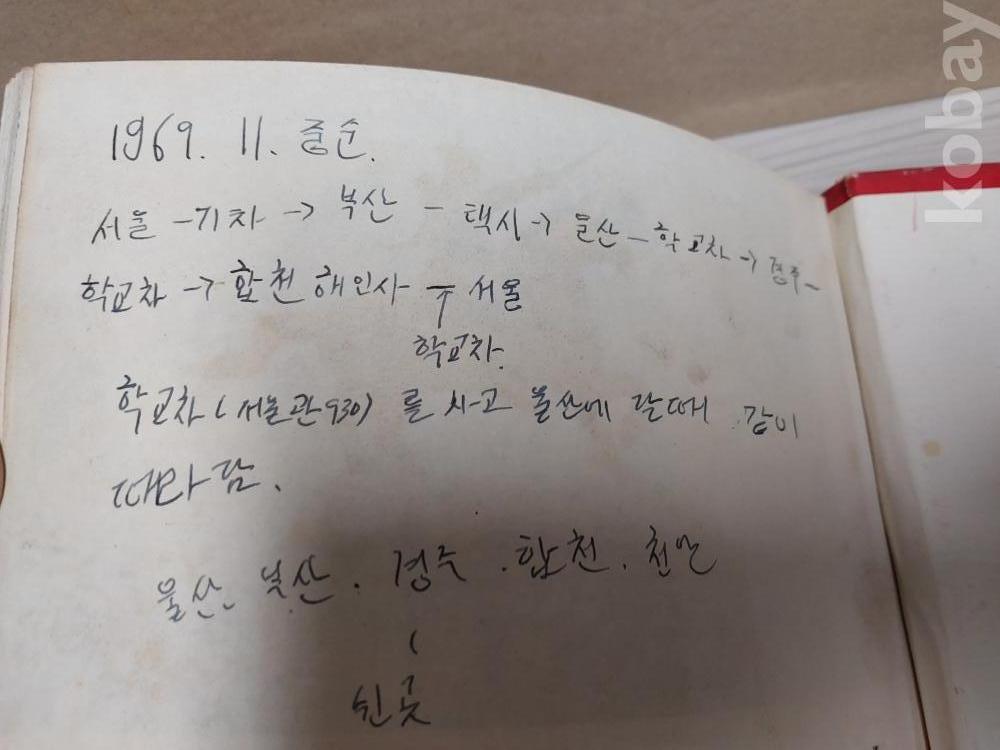 1969. 11. 중순.
서울 -기차 -> 부산 - 택시-> 울산 - 학교차 -> 경주 -
학교차 -> 합천 해인사 -> 서울
↑
학교차.
학교차(서울관930) 를 사고 울산에 갈때 같이
따라감.
울산. 부산. 경주. 합천. 천안
(
쉰곳
kobay